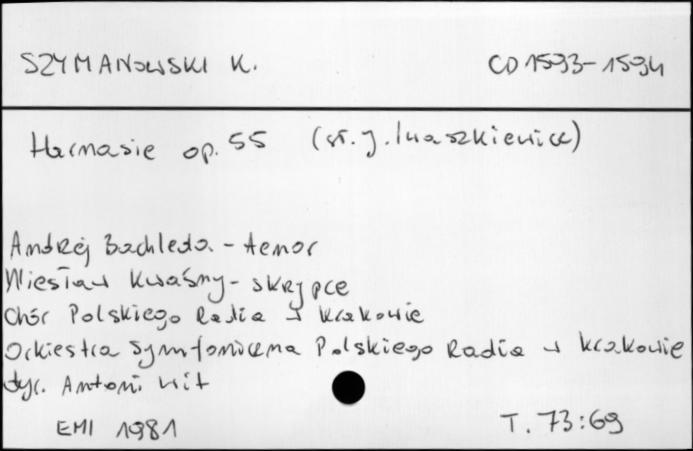 SZYMANOWSKI K. CD 1593-1594
Harnasie op. 55 (sł. J. Iwaszkiewicz)
Andrzej Bachleda - tenor
Wiesław Kwaśny - skrzypce
Chór Polskiego Radia w Krakowie
Orkiestra Symfoniczna Polskiego Radia w Krakowie
dyr. Antoni Wit
EMI 1981 T. 73:69